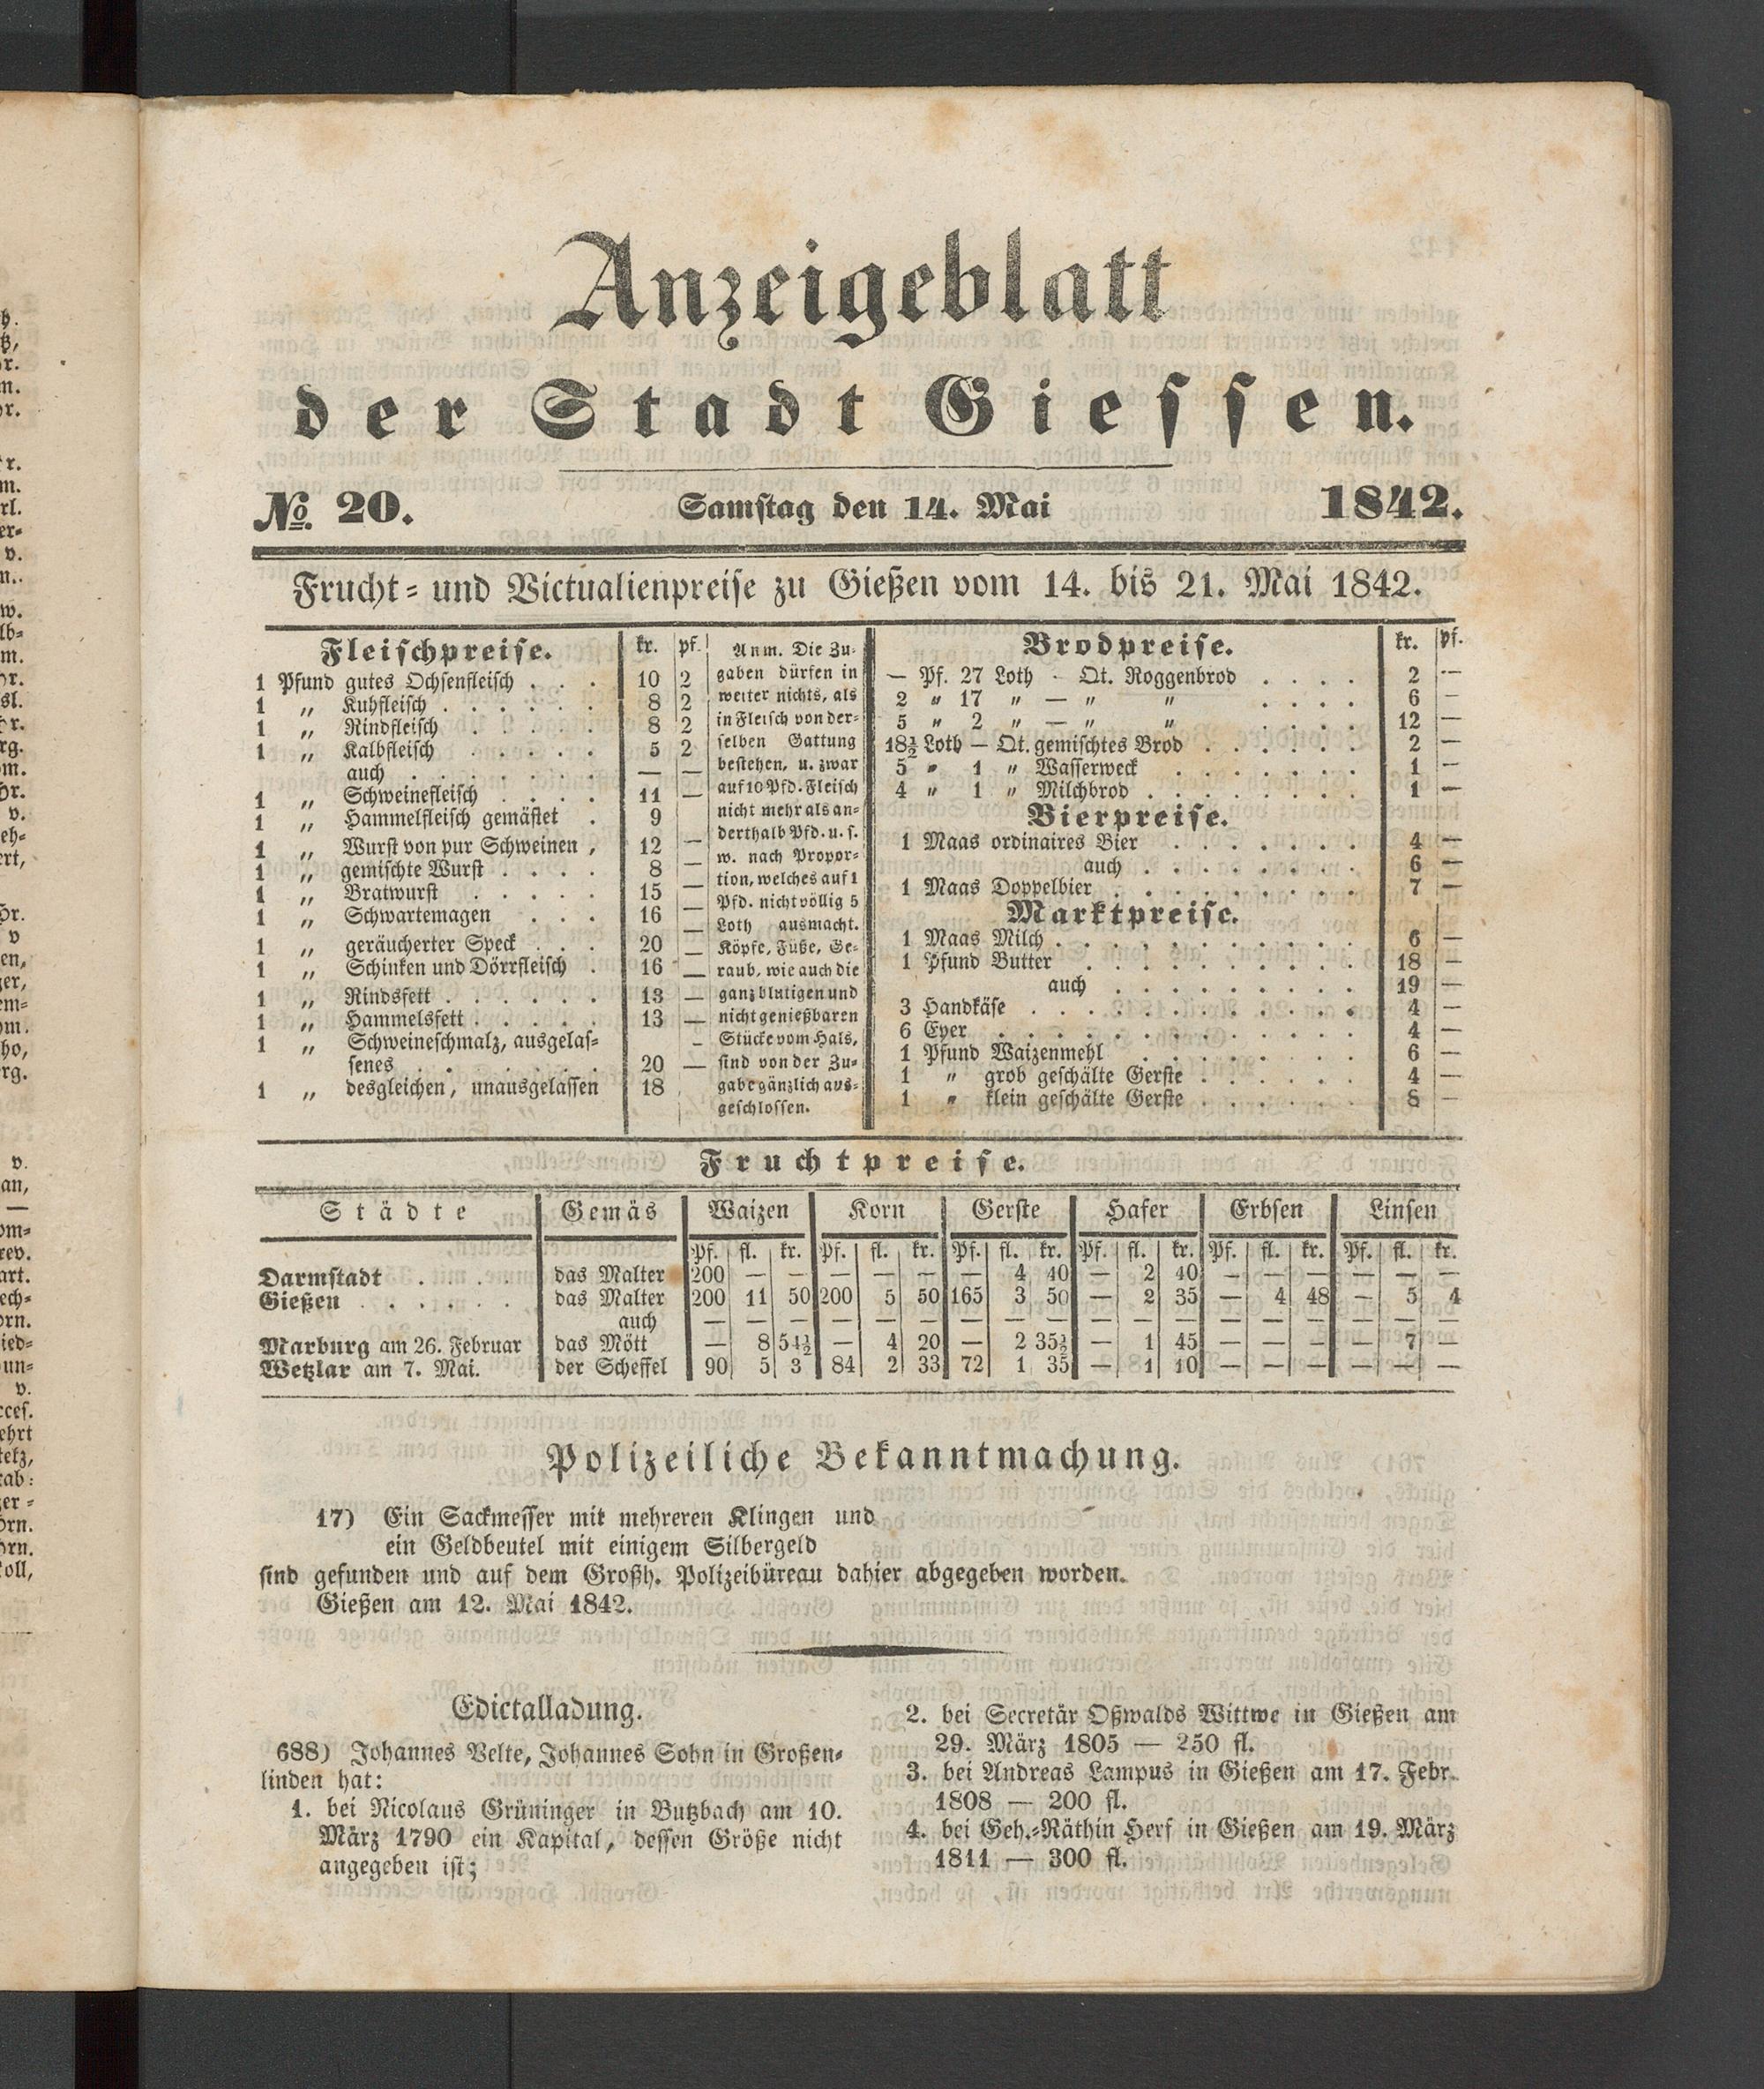 Anzeigeblatt
der Stadt Giessen.
No. 20. Samstag den 14. Mai 1842.
Frucht- und Victualienpreise zu Gießen vom 14. bis 21. Mai 1842.
Fleischpreise. kr. pf.
1 Pfund gutes Ochsenfleisch . . . 10 2
1 „ Kuhfleisch . . . . . . 8 2
1 „ Rindfleisch . . . . . 8 2
1 „ Kalbfleisch . . . . . 5 2
auch . . . . . . . — —
1 „ Schweinefleisch . . . . 11 —
1 „ Hammelfleisch gemästet . 9
1 „ Wurst von pur Schweinen , 12 —
1 „ gemischte Wurst . . . . 8 —
1 „ Bratwurst . . . . . 15 —
1 „ Schwartemagen . . . 16 —
1 „ geräucherter Speck . . . 20 —
1 „ Schinken und Dörrfleisch . 16 —
1 „ Rindsfett . . . . . . 13 —
1 „ Hammelsfett . . . . . 13 —
1 „ Schweineschmalz, ausgelas-
senes . . . . . . . 20 —
1 „ desgleichen, unausgelassen 18
Anm. Die Zu-
gaben dürfen in
weiter nichts, als
in Fleisch von der-
selben Gattung
bestehen, u. zwar
auf 10 Pfd. Fleisch
nicht mehr als an-
derthalb Pfd. u. s.
w. nach Propor-
tion, welches auf 1
Pfd. nicht völlig 5
Loth ausmacht.
Köpfe, Füße, Ge-
raub, wie auch die
ganz blutigen und
nicht genießbaren
Stücke vom Hals,
sind von der Zu-
gabe gänzlich aus-
geschlossen.
Brodpreise. kr. pf.
— Pf. 27 Loth - Qt. Roggenbrod . . . . 2 —
2 „ 17 „ — „ „ . . . . 6 —
5 „ 2 „ — „ „ . . . . 12 —
18½ Loth — Qt. gemischtes Brod . . . . . . 2 —
5 „ 1 „ Wasserweck . . . . . . . 1 —
4 „ 1 „ Milchbrod . . . . . . . . 1 —
Bierpreise.
1 Maas ordinaires Bier . . . . . . . 4 —
auch . . . . . . . . 6 —
1 Maas Doppelbier . . . . . . . . . 7 —
Marktpreise.
1 Maas Milch . . . . . . . . . . . 6 —
1 Pfund Butter . . . . . . . . . . 18 —
auch . . . . . . . . . 19 —
3 Handkäse . . . . . . . . . . . . 4 —
6 Eyer . . . . . . . . . . . . . 4 —
1 Pfund Waizenmehl . . . . . . . . 6 —
1 „ grob geschälte Gerste . . . . . . 4 —
1 „ klein geschälte Gerste . . . . . . 8 —
Fruchtpreise.
Städte Gemäs Waizen Korn Gerste Hafer Erbsen Linsen
Pf. fl. kr. Pf. fl. kr. Pf. fl. kr. Pf. fl. kr. Pf. fl. kr. Pf. fl. kr.
Darmstadt . . . . das Malter 200 — — — — — — 4 40 — 2 40 — — — — — —
Gießen . . . . . . das Malter 200 11 50 200 5 50 165 3 50 — 2 35 — 4 48 — 5 4
auch — — — — — — — — — — — — — — — — — —
Marburg am 26. Februar das Mött — 8 54½ — 4 20 — 2 35½ — 1 45 — — — — 7 —
Wetzlar am 7. Mai. der Scheffel 90 5 3 84 2 33 72 1 35 — 1 10 — — — — — —
Polizeiliche Bekanntmachung.
17) Ein Sackmesser mit mehreren Klingen und
ein Geldbeutel mit einigem Silbergeld
sind gefunden und auf dem Großh. Polizeibüreau dahier abgegeben worden.
Gießen am 12. Mai 1842.
Edictalladung.
688) Johannes Velte, Johannes Sohn in Großen-
linden hat:
1. bei Nicolaus Grüninger in Butzbach am 10.
März 1790 ein Kapital, dessen Größe nicht
angegeben ist;
2. bei Secretär Oßwalds Wittwe in Gießen am
29. März 1805 — 250 fl.
3. bei Andreas Lampus in Gießen am 17. Febr.
1808 — 200 fl.
4. bei Geh.-Räthin Herf in Gießen am 19. März
1811 — 300 fl.